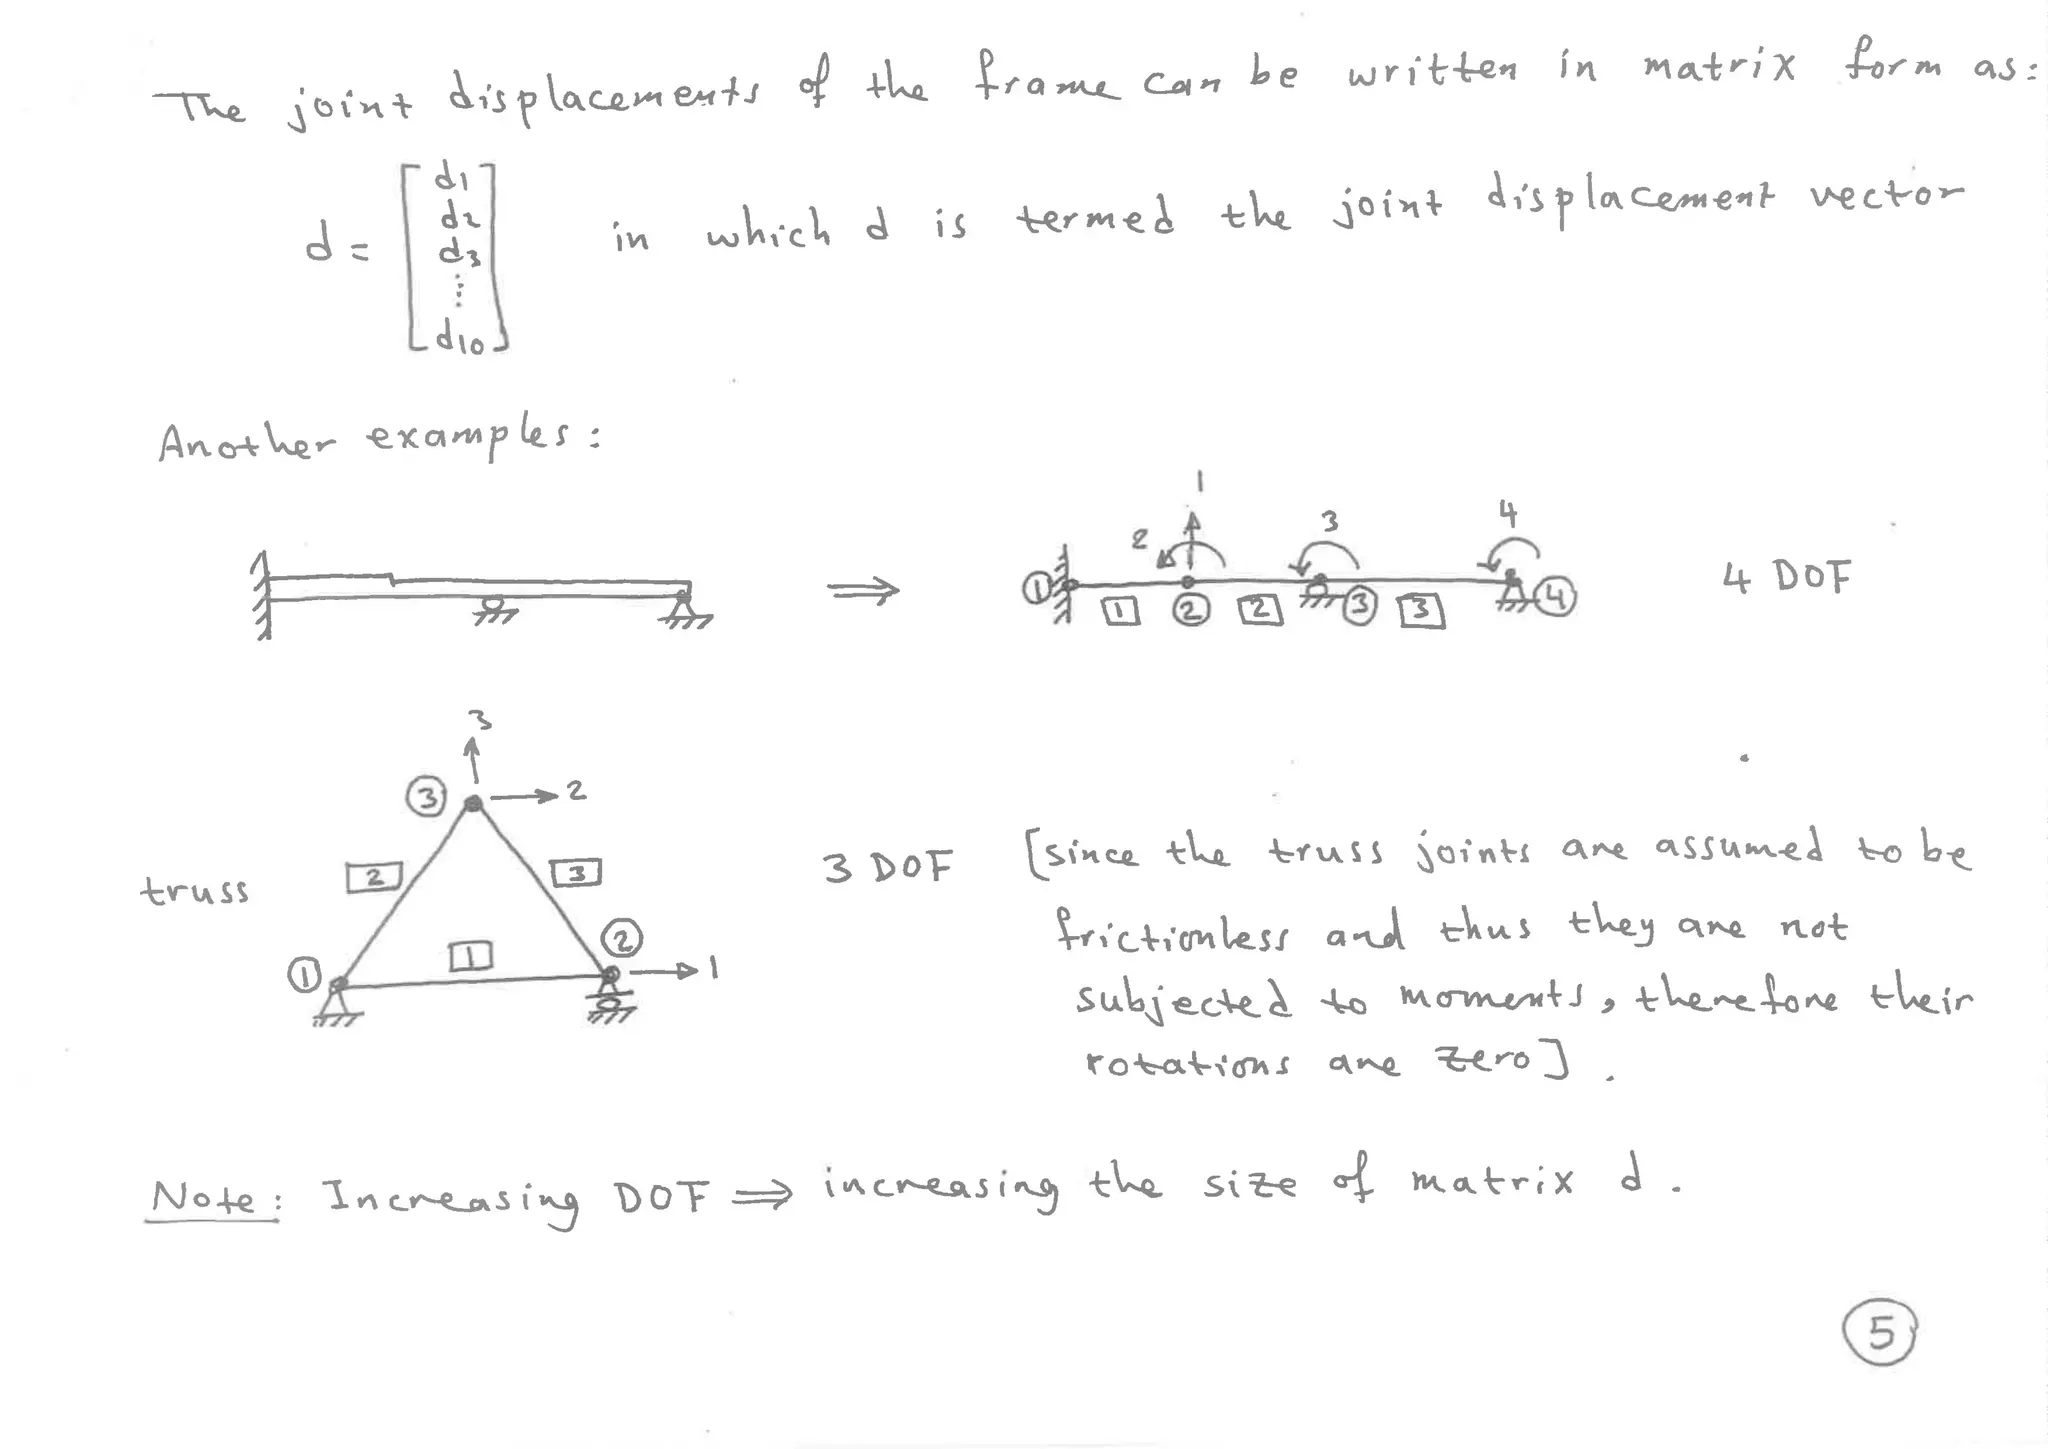 The joint displacements of the frame can be written in matrix form as:
d = [d1 d2 d3 ⋮ d10] in which d is termed the joint displacement vector
Another examples:
1
2 3 4
⇒ 4 DOF
① 1 ② 2 ③ 3 ④
3
③ 2
truss 2 3 3 DOF [since the truss joints are assumed to be
frictionless and thus they are not
① 1 ② 1
subjected to moments, therefore their
rotations are zero].
Note: Increasing DOF ⇒ increasing the size of matrix d.
5